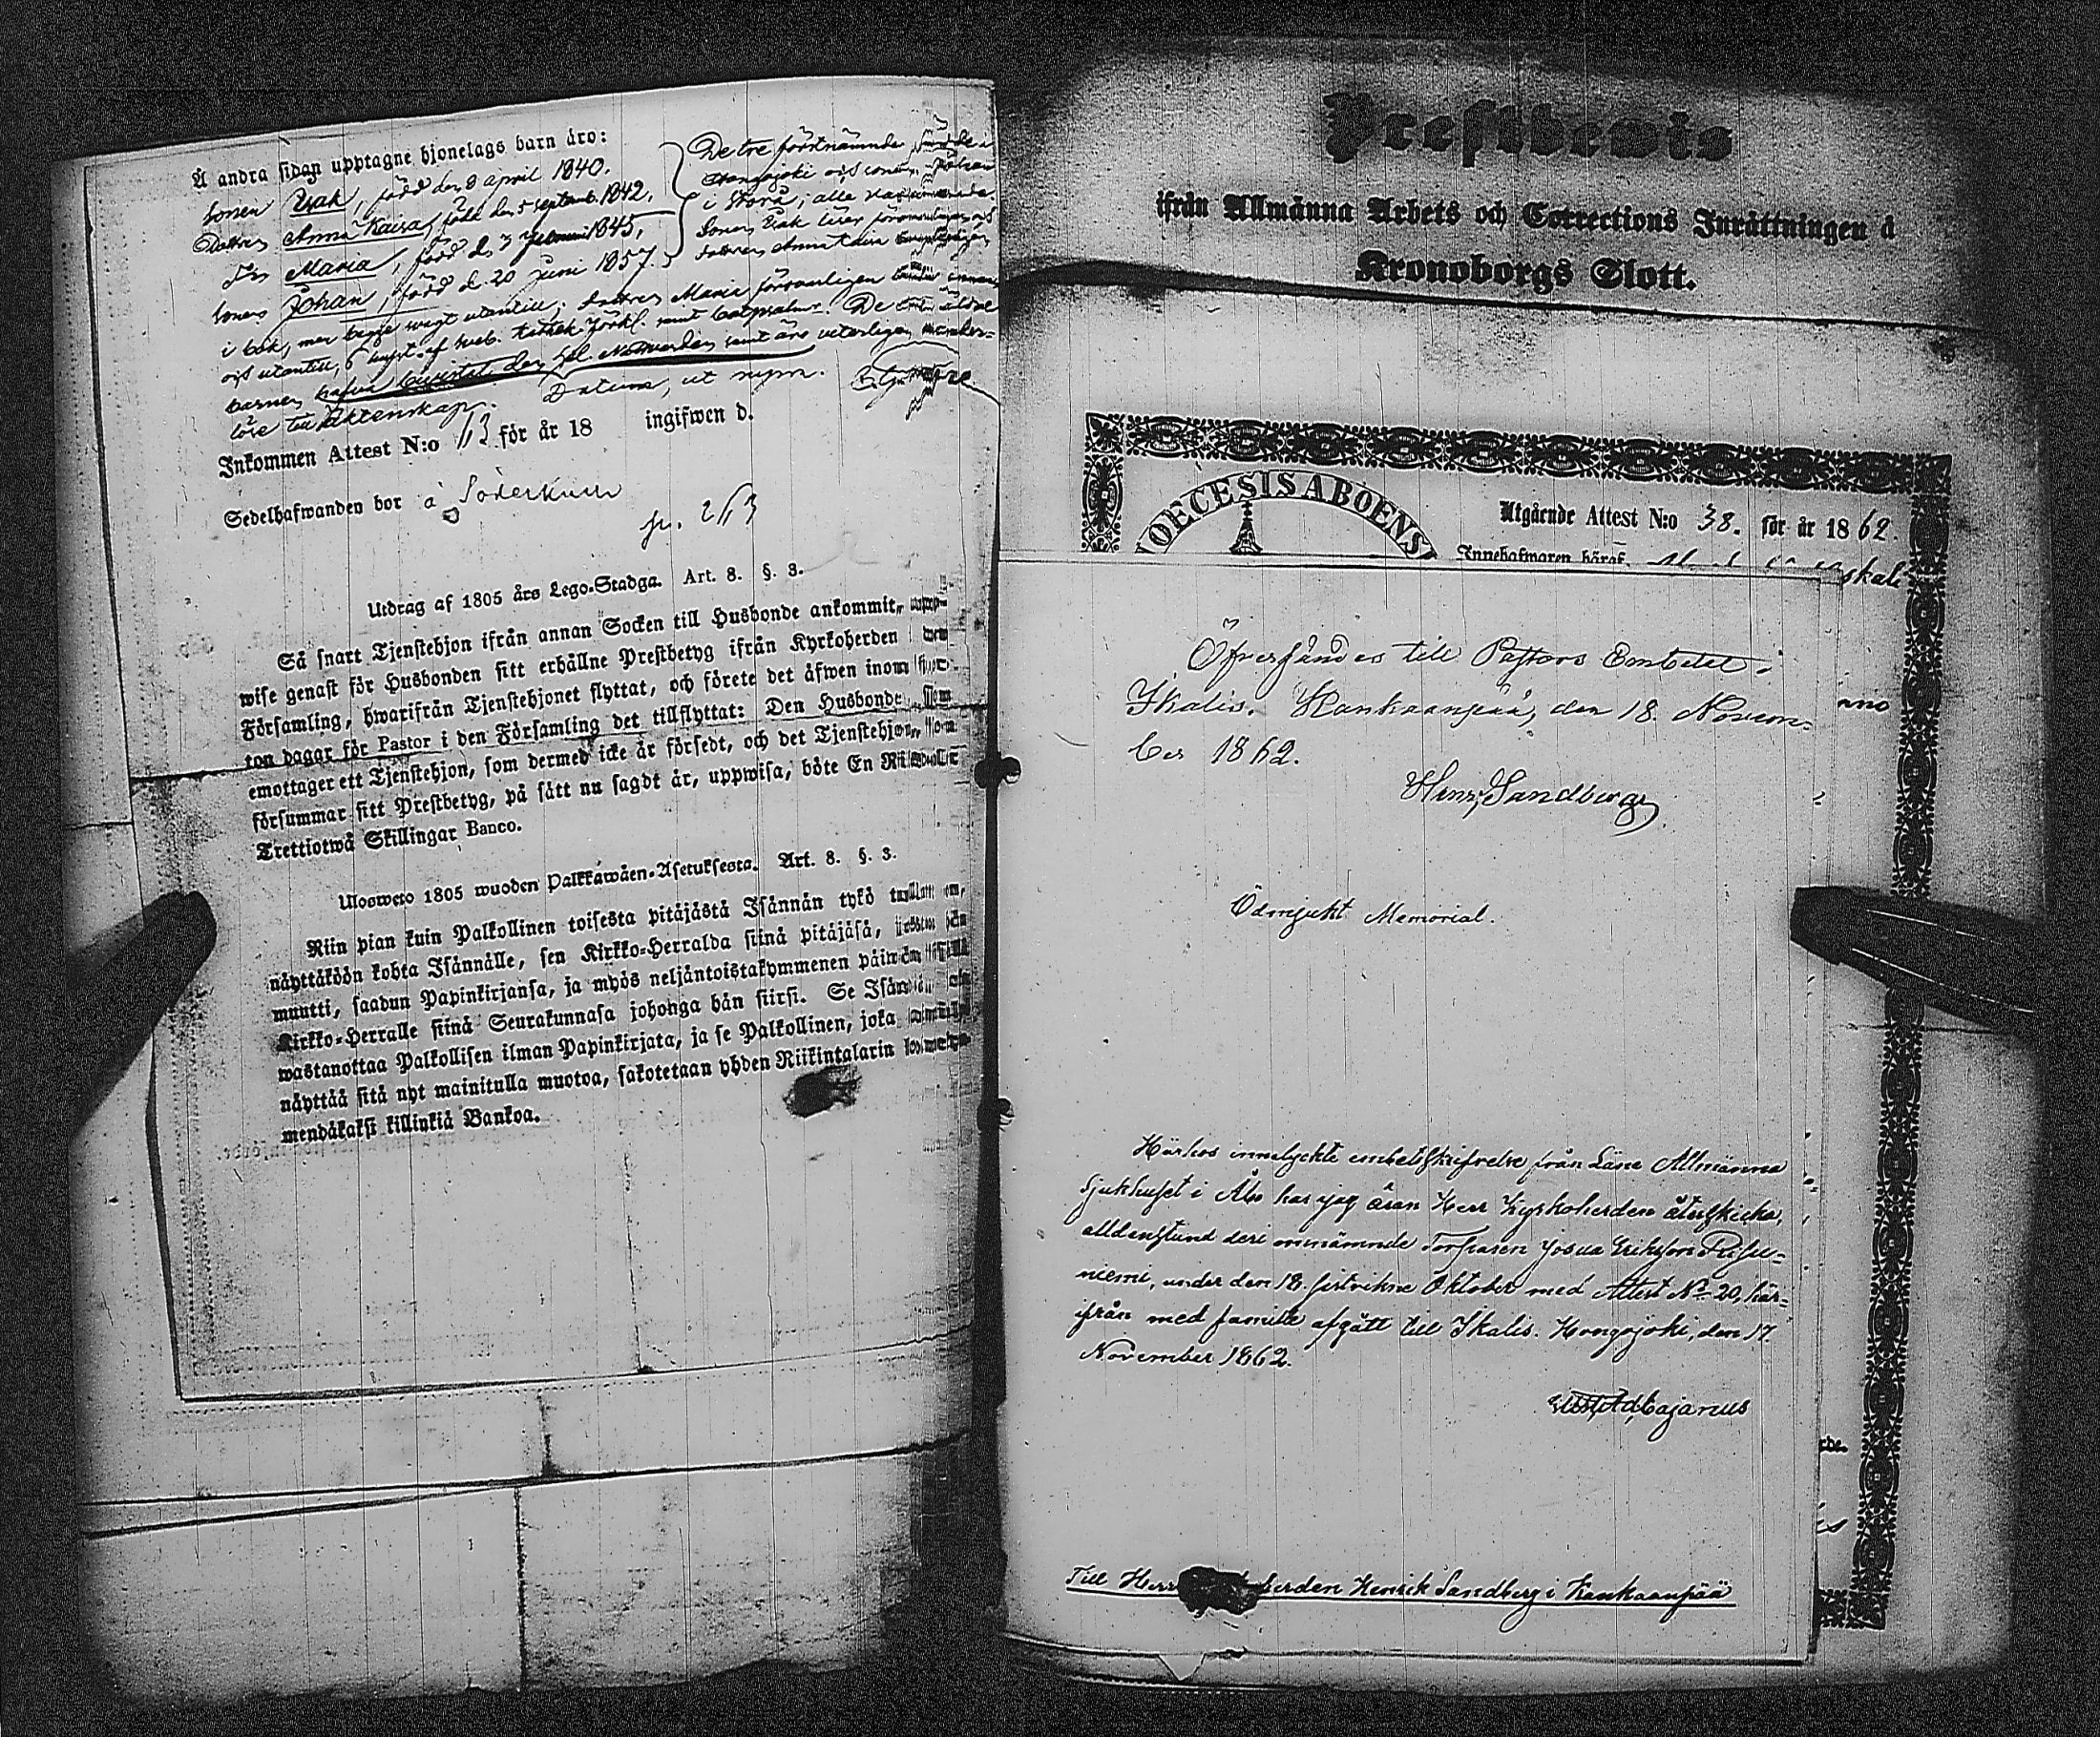 Å andra sidan upptagne hjonelags barn äro:
Sonen Isak, född den 8 april 1840.
Dottren Anna Kaisa, född den 5 septemb. 1842,
Maria, född d. 3 Februari 1845,
Sonen Johan, född d. 20 juni 1857.
De tre förstnämnde födde i
Hongojoki och sonen Johan
i Storå; alla
Sonen Isak läser försvarligen
dottren Anna Caisa
i bok, men begge svagt utantill; dottren Maria försvarligen innan
och utantill, af Sveb. kathek. förkl. samt botpsalmer. De äldre
barnen hafva bevistat den hel. Nattvarden samt äro veterligen
löse till Äktenskap. Datum, ut supra.
Inkommen Attest N:o 113 för år 18 ingifwen d.
Sedelhafwanden bor å
p. 263
Utdrag af 1805 års Lego-Stadga. Art. 8. §. 3.
Så snart Tjenstehjon ifrån annan Socken till Husbonde ankommit, upp-
wise genast för Husbonden sitt erhållne Prestbetyg ifrån Kyrkoherden i den
Församling, hwarifrån Tjenstehjonet flyttat, och förete det äfwen inom fjor-
ton dagar för Pastor i den Församling det tillflyttat: Den Husbonde, som
emottager ett Tjenstehjon, som dermed icke är försedt, och det Tjenstehjon, som
försummar sitt Prestbetyg, på sätt nu sagdt är, uppwisa, böte En Riksdaler
Trettiotwå Skillingar Banco.
Uloswето 1805 wuoden Palkkawäen-Asetuksesta. Art. 8. §. 3.
Niin pian kuin Palkollinen toisesta pitäjästä Isännän tykö tullut on,
näyttäköön kohta Isännälle, sen Kirkko-Herralda siinä pitäjäsä, josta hän
muutti, saadun Papinkirjansa, ja myös neljäntoistakymmenen päiwän sisällä
Kirkko-Herralle siinä Seurakunnasa johonga hän siirsi. Se Isändä, joka
wastanottaa Palkollisen ilman Papinkirjata, ja se Palkollinen, joka
näyttää sitä nyt mainitulla muotoa, sakotetaan yhden Riikintalarin
mendäkaksi killinkiä Bankoa.
Prestbewis
ifrån Allmänna Arbets och Corrections Inrättningen å
Kronoborgs Slott.
DIOECESIS ABOENSI
Utgående Attest N:o 38. för år 1862.
Innehafwaren häraf,
Öfversändes till Pastors Embetet i
Ikalis. Kankaanpää, den 18. Novem-
ber 1862.
Henr. Sandberg
Ödmjukt Memorial.
Härhos innelyckte embetsskrifvelse från Läne Allmänna
Sjukhuset i Åbo har jag äran Herr Kyrkoherden återskicka,
alldenstund deri omnämnde Torparen Josua Eriksson
niemi, under den 18. sistvikne Oktober med Attest No 20, här-
ifrån med familie afgått till Ikalis. Hongojoki, den 17.
November 1862.
Cajanus
Till Herr herden Henrik Sandberg i Kankaanpää